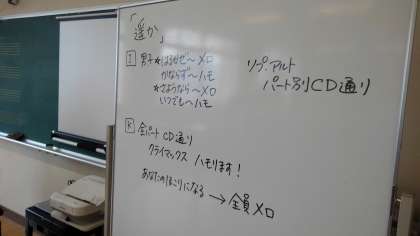 「遥か」
I 男子 ★はるかぜ〜メロ
かならず〜ハモ
★さようなら〜メロ
いつでも〜ハモ
ソプ.アルト
パート別CD通り
K 全パートCD通り
クライマックス ハモります!
あなたのほこりになる → 全員メロ